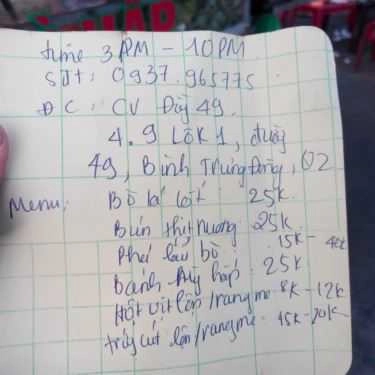 time 3PM - 10PM
SĐT: 0937.965775
ĐC: CV Đường 49.
4.9 LÔK 1, đường
49, Bình Trưng Đông, Q2
Menu: Bò lá lốt 25K
Bún thịt nướng: 25K
Phá lấu bò. 15K - 40K
bánh mỳ hấp. 25K
Hột vịt lộn/rang me 8K - 12K
trứng cút lộn/rang me. 15K-20K